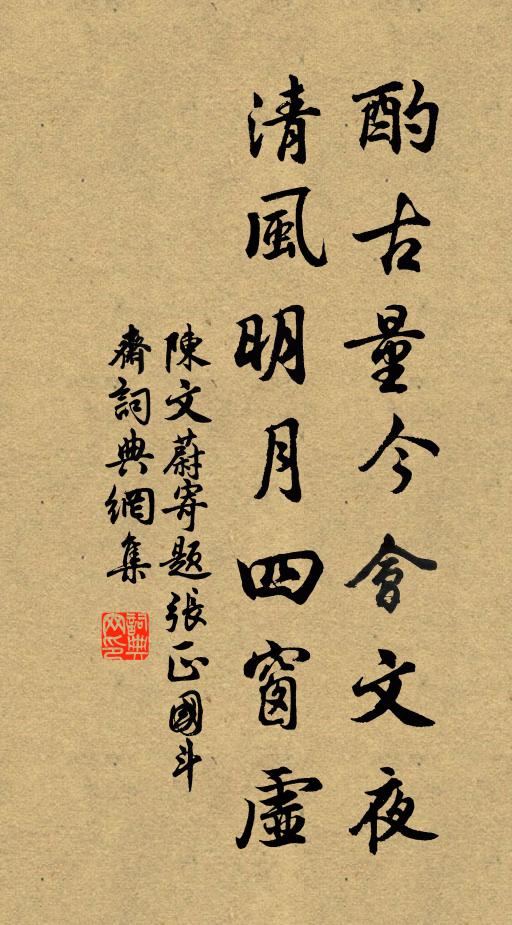 酌古量今會文夜
清風明月四窗虛
陳文蔚寄題張正國斗
齋詞典網集
詞典网印